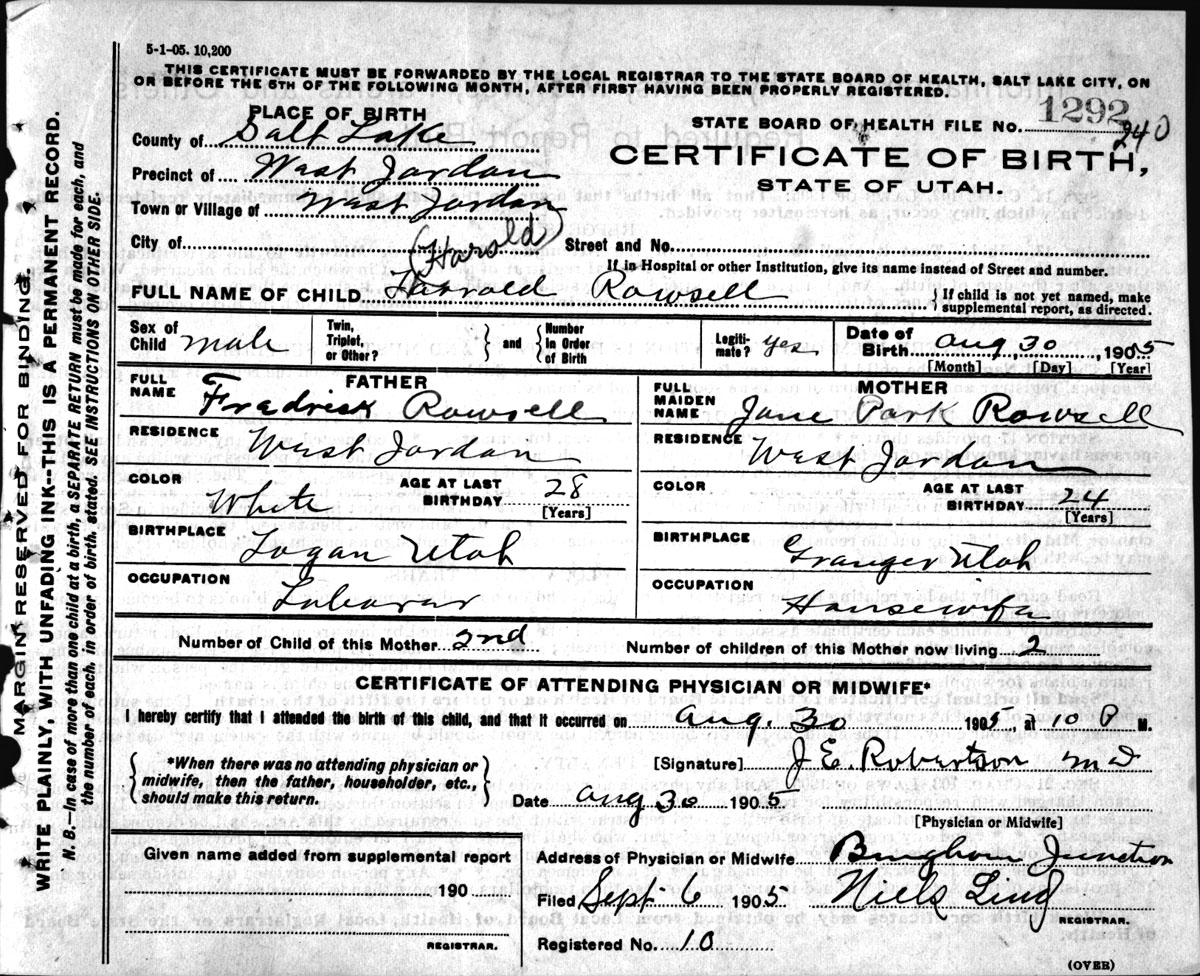 5-1-05. 10,200
THIS CERTIFICATE MUST BE FORWARDED BY THE LOCAL REGISTRAR TO THE STATE BOARD OF HEALTH, SALT LAKE CITY, ON
OR BEFORE THE 5TH OF THE FOLLOWING MONTH, AFTER FIRST HAVING BEEN PROPERLY REGISTERED.
PLACE OF BIRTH
County of Salt Lake
Precinct of West Jordan
Town or Village of West Jordan
City of
STATE BOARD OF HEALTH FILE No. 1292
240
CERTIFICATE OF BIRTH,
STATE OF UTAH.
Street and No.
If in Hospital or other Institution, give its name instead of Street and number.
(Harold)
FULL NAME OF CHILD Harrald Rowsell
{ If child is not yet named, make
supplemental report, as directed.
Sex of Child male
Twin, Triplet, or Other? } and { Number in Order of Birth
Legiti-mate? yes
Date of Birth Aug, 30, 1905
[Month] [Day] [Year]
FATHER
FULL NAME Fredrick Rowsell
RESIDENCE West Jordan
COLOR White
AGE AT LAST BIRTHDAY 28
[Years]
BIRTHPLACE Logan Utah
OCCUPATION Laborar
MOTHER
FULL MAIDEN NAME Jane Park Rowsell
RESIDENCE West Jordan
COLOR
AGE AT LAST BIRTHDAY 24
[Years]
BIRTHPLACE Granger Utah
OCCUPATION Housewife
Number of Child of this Mother 2nd
Number of children of this Mother now living 2
CERTIFICATE OF ATTENDING PHYSICIAN OR MIDWIFE*
I hereby certify that I attended the birth of this child, and that it occurred on Aug. 30 1905, at 10 P M.
{ *When there was no attending physician or
midwife, then the father, householder, etc.,
should make this return. }
[Signature] J. E. Robertson MD
Date Aug 30 1905
[Physician or Midwife]
Given name added from supplemental report
190
REGISTRAR.
Address of Physician or Midwife Bingham Junction
Filed Sept 6 1905 Niels Lind
REGISTRAR.
Registered No. 10
(OVER)
MARGIN RESERVED FOR BINDING
WRITE PLAINLY, WITH UNFADING INK--THIS IS A PERMANENT RECORD.
N. B. In case of more than one child at a birth, a SEPARATE RETURN must be made for each, and
the number of each, in order of birth, stated. SEE INSTRUCTIONS ON OTHER SIDE.